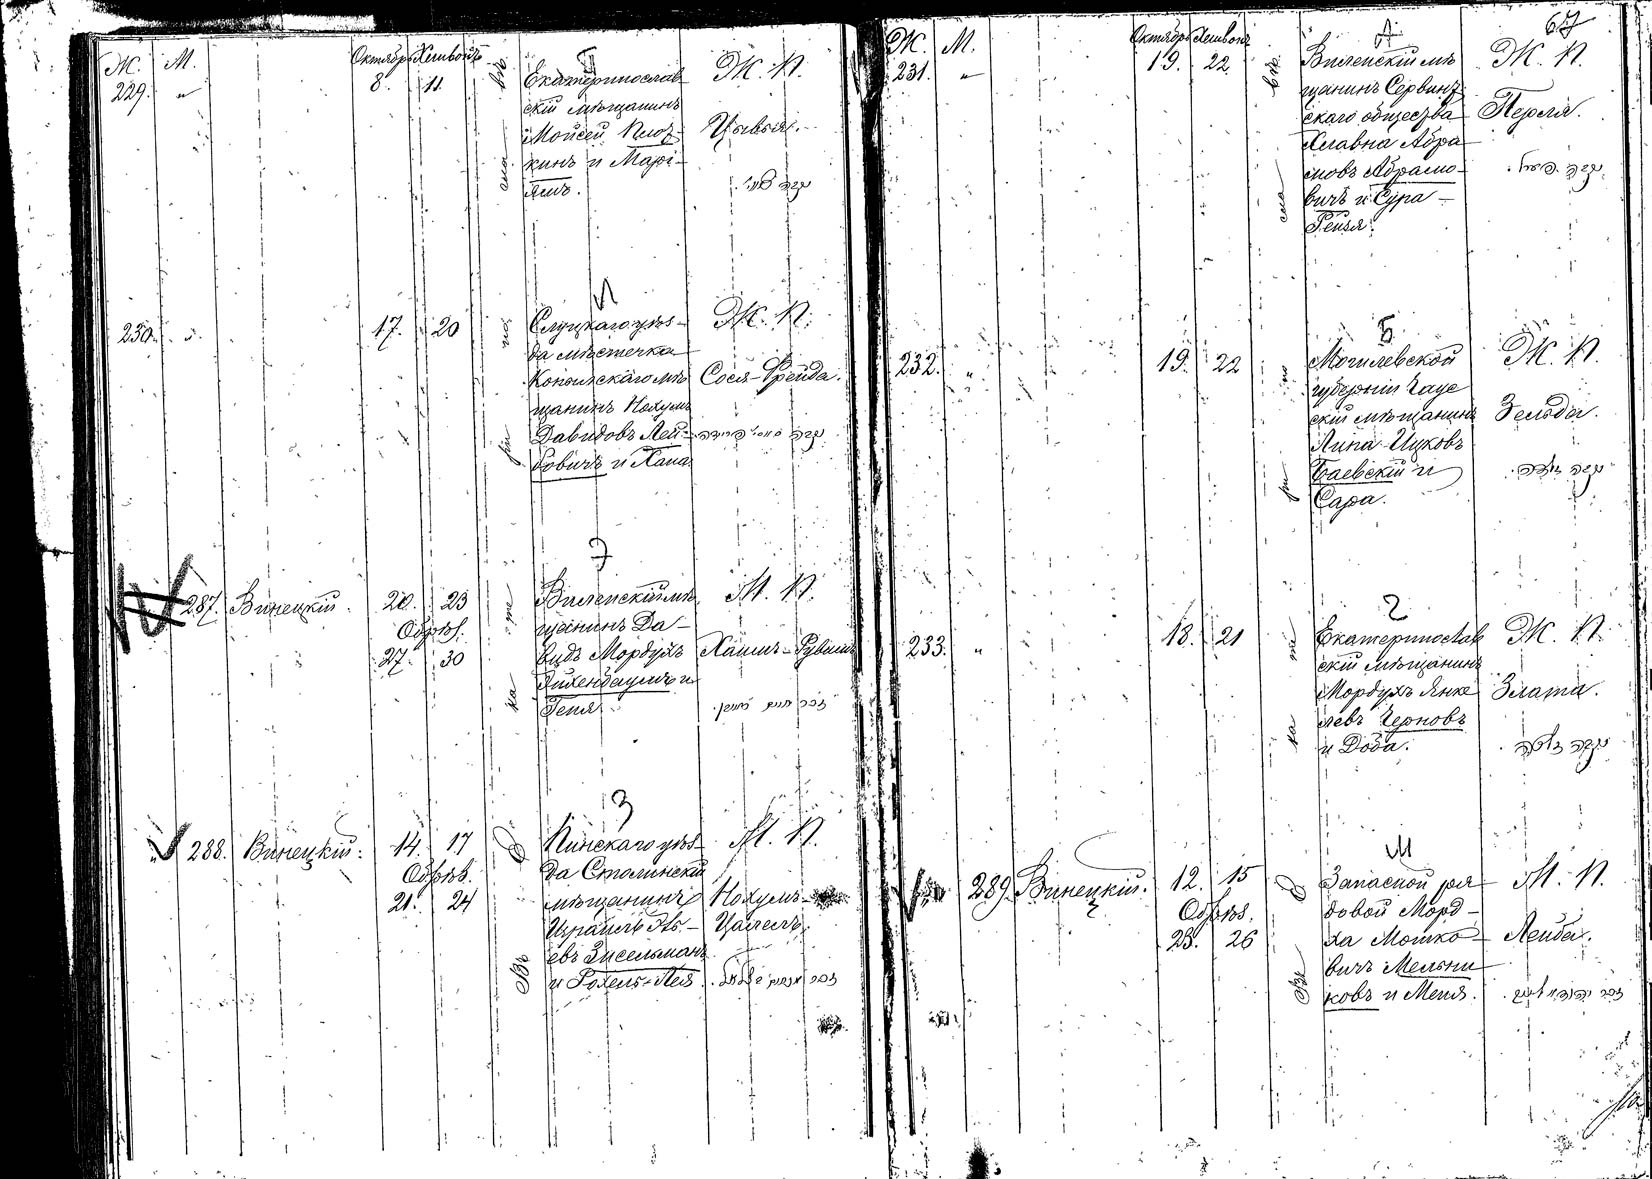 Ж. М. Октябрь Хешвонъ
229. „ 8. 11. въ
Екатеринослав-
скій мѣщанинъ
Мойсей Плот-
кинъ и Марі-
ямъ.
Ж. П.
Цывья.
230. 17. 20
И
Слуцкаго уѣз-
да мѣстечка
Копыльскаго мѣ-
щанинъ Нохумъ
Давидовъ Лей-
бовичъ и Хана.
Ж. П.
Сося-Фрейда.
נקבה סאסי פריידה
Э
287. Винецкій. 20. 23
Обрѣз.
27. 30
Виленскій мѣ-
щанинъ Да-
видъ Мордухъ
Айхенбаумъ и
Геня
М. П.
Хаимъ-Рувинъ
זכר חיים ראובן.
З
288. Винецкій. 14. 17
Обрѣз.
21. 24
Въ
Пинскаго уѣз-
да Столинскій
мѣщанинъ
Израиль
евъ Зисельманъ
и Рохель-Лея
М. П.
Нохумъ-
Цалелъ.
67
Ж. М. Октябрь Хешвонъ
231. „ 19. 22. въ
Виленскій мѣ-
щанинъ Сервеч-
скаго общества
Хлавна Абра-
мовъ Абрамо-
вичъ и Сура-
Рейзя.
Ж. П.
Перля.
נקבה פערל.
232. „ 19. 22
Б
Могилевской
губерніи Чаус
скій мѣщанинъ
Липа Ицковъ
Баевскій и
Сара.
Ж. П.
Зельда.
נקבה זעלדה.
233. „ 18. 21
Екатеринослав
скій мѣщанинъ
Мордухъ Янке
левъ Черновъ
и Доба.
Ж. П.
Злата.
נקבה זלאטה
Ш
289. Винецкій. 12. 15
Обрѣз.
23. 26
Въ
Запасной ря-
довой Морд-
ха Мошко-
вичъ Мельни
ковъ и Меня.
М. П.
Лейба.
זכר יהודה לייב.